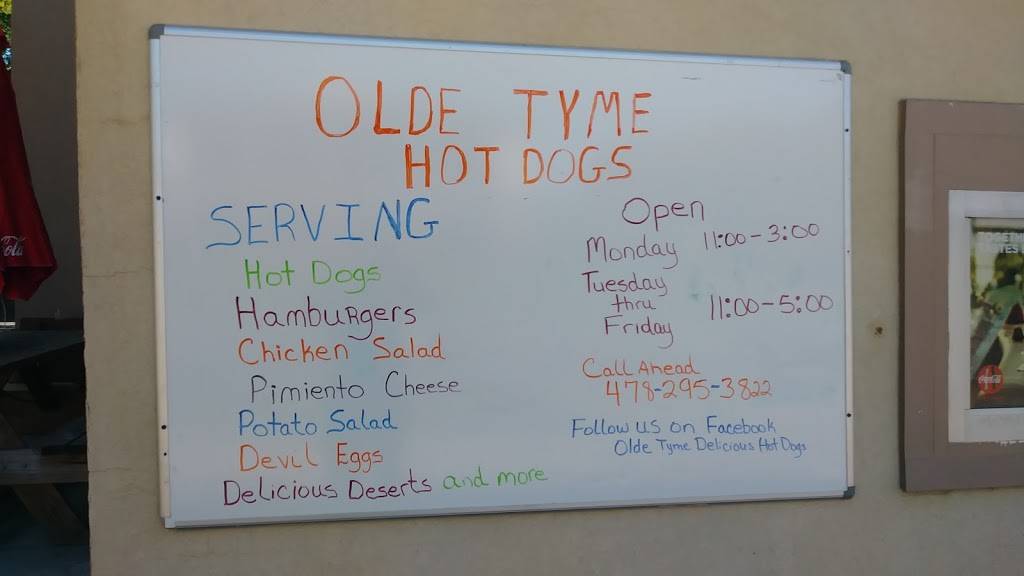 OLDE TYME
HOT DOGS
SERVING
Hot Dogs
Hamburgers
Chicken Salad
Pimiento Cheese
Potato Salad
Devil Eggs
Delicious Deserts and more
Open
Monday 11:00-3:00
Tuesday
thru 11:00-5:00
Friday
Call Ahead
478-295-3822
Follow us on Facebook
Olde Tyme Delicious Hot Dogs
Coca-Cola